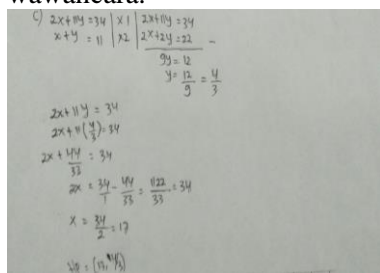 wawancara.
c) 2x+11y=34 | x1 | 2x+11y=34
x+y = 11 | x2 | 2x+2y=22 -
9y=12
y= 12/9 = 4/3
2x+11y = 34
2x+11(4/3)=34
2x+ 44/33 = 34
2x = 34/1 - 44/33 = 1122/33 = 34
x = 34/2 = 17